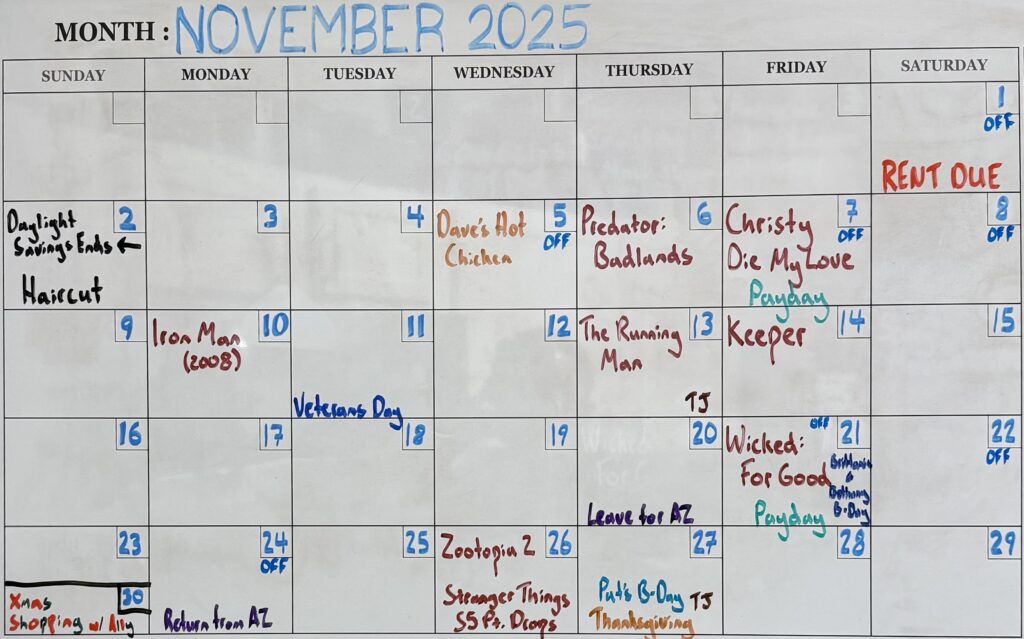 MONTH : NOVEMBER 2025
SUNDAY MONDAY TUESDAY WEDNESDAY THURSDAY FRIDAY SATURDAY
1
OFF
RENT DUE
2
Daylight
Savings Ends ←
Haircut
3
4
5
OFF
Dave's Hot
Chicken
6
Predator:
Badlands
7
OFF
Christy
Die My Love
Payday
8
OFF
9
10
Iron Man
(2008)
11
Veterans Day
12
13
The Running
Man
TJ
14
Keeper
15
16
17
18
19
20
Leave for AZ
OFF 21
Wicked:
For Good
Brittanie
&
Bethany
B-Day
Payday
22
OFF
23
24
OFF
Return from AZ
25
26
Zootopia 2
Stranger Things
S5 Pt. Drops
27
Pat's B-Day TJ
Thanksgiving
28
29
30
Xmas
Shopping w/ Ally